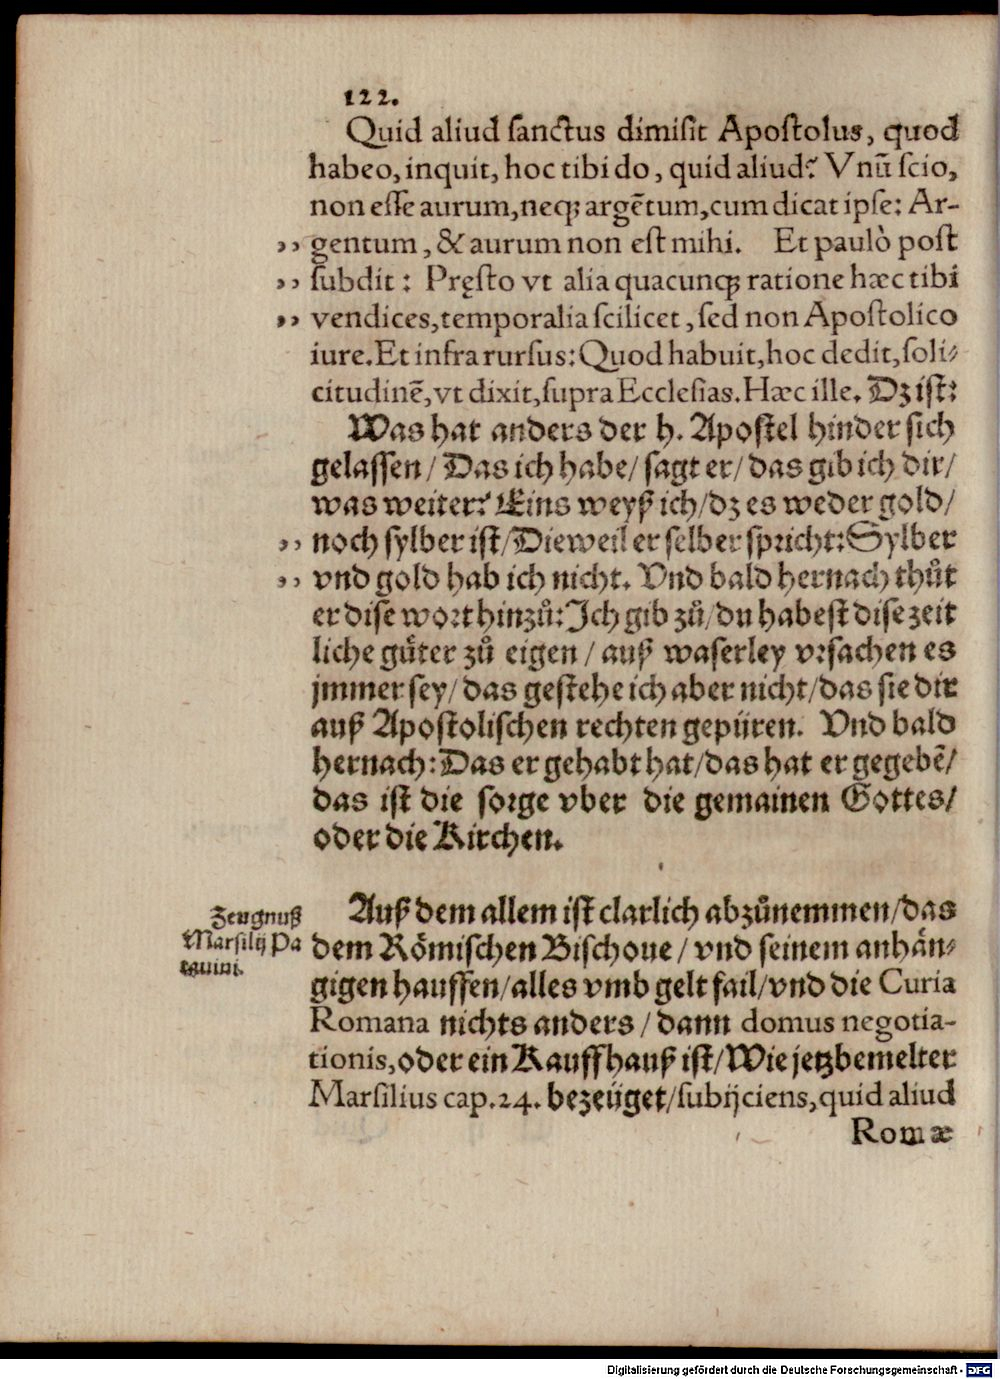 122.
Quid aliud sanctus dimisit Apostolus, quod
habeo, inquit, hoc tibi do, quid aliud? Vnũ scio,
non esse aurum, neq; argẽtum, cum dicat ipse: Ar-
„ gentum, & aurum non est mihi. Et paulò post
„ subdit: Pręsto vt alia quacunq; ratione hæc tibi
„ vendices, temporalia scilicet, sed non Apostolico
iure. Et infra rursus: Quod habuit, hoc dedit, soli-
citudinẽ, vt dixit, supra Ecclesias. Hæc ille. Dz ist:
Was hat anders der h. Apostel hinder sich
gelassen/ Das ich habe/ sagt er/ das gib ich dir/
was weiter? Eins weyß ich/ dz es weder gold/
„ noch sylber ist/ Dieweil er selber spricht: Sylber
„ vnd gold hab ich nicht. Vnd bald hernach thůt
er dise wort hinzů: Ich gib zů/ du habest dise zeit
liche gůter zů eigen/ auß waserley vrsachen es
jmmer sey/ das gestehe ich aber nicht/ das sie dir
auß Apostolischen rechten gepüren. Vnd bald
hernach: Das er gehabt hat/ das hat er gegebẽ/
das ist die sorge vber die gemainen Gottes/
oder die Kirchen.
Auß dem allem ist clarlich abzůnemmen/ das
Zeugnuß
Marsilij Pa
tauini.
dem Römischen Bischoue/ vnd seinem anhän-
gigen hauffen/ alles vmb gelt fail/ vnd die Curia
Romana nichts anders/ dann domus negotia-
tionis, oder ein Kauffhauß ist/ Wie jetzbemelter
Marsilius cap. 24. bezeüget/ subijciens, quid aliud
Romæ
Digitalisierung gefördert durch die Deutsche Forschungsgemeinschaft - DFG